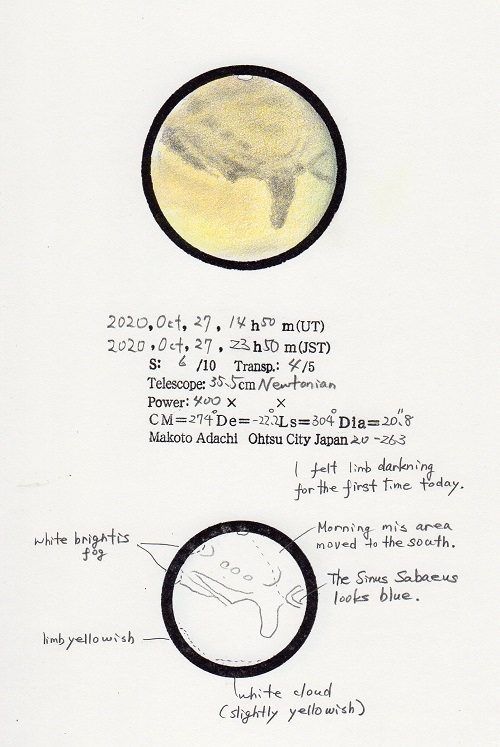 2020, Oct, 27, 14 h 50 m (UT)
2020, Oct, 27, 23 h 50 m (JST)
S: 6 /10 Transp.: 4/5
Telescope: 35.5cm Newtonian
Power: 400 × ×
CM=274° De=-22.2° Ls=304° Dia=20.″8
Makoto Adachi Ohtsu City Japan 20-263
I felt limb darkning
for the first time today.
White bright is
fog
Morning mis area
moved to the south.
The Sinus Sabaeus
looks blue.
limb yellowish
white cloud
(slightly yellowish)